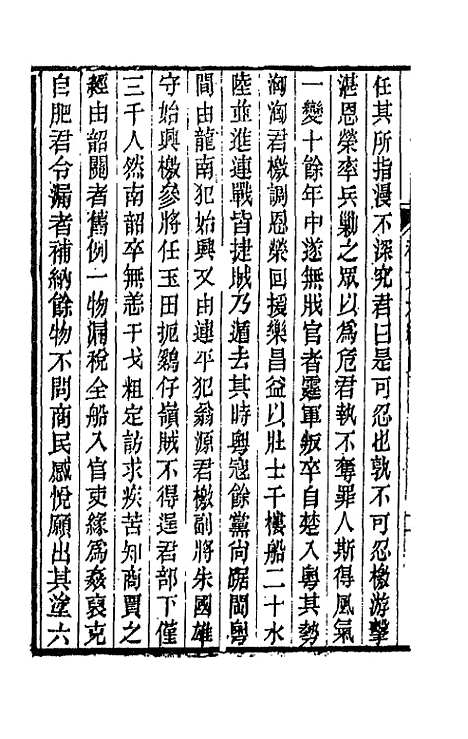 任其所指漫不深究君曰是可忍也孰不可忍檄游擊
湛恩榮率兵勦之眾以為危君執不奪罪人斯得風氣
一變十餘年中遂無戕官者霆軍叛卒自楚入粵其勢
洶洶君檄調恩榮回援樂昌益以壯士千樓船二十水
陸並進連戰皆捷賊乃遁去其時粵寇餘黨尚踞閩粵
間由龍南犯始興又由連平犯翁源君檄副將朱國雄
守始興檄參將任玉田扼鷄仔嶺賊不得逞君部下僅
三千人然南韶卒無恙干戈粗定訪求疾苦知商賈之
經由韶關者舊例一物漏稅全船入官吏緣為姦裒克
自肥君令漏者補納餘物不問商民感悅願出其塗六